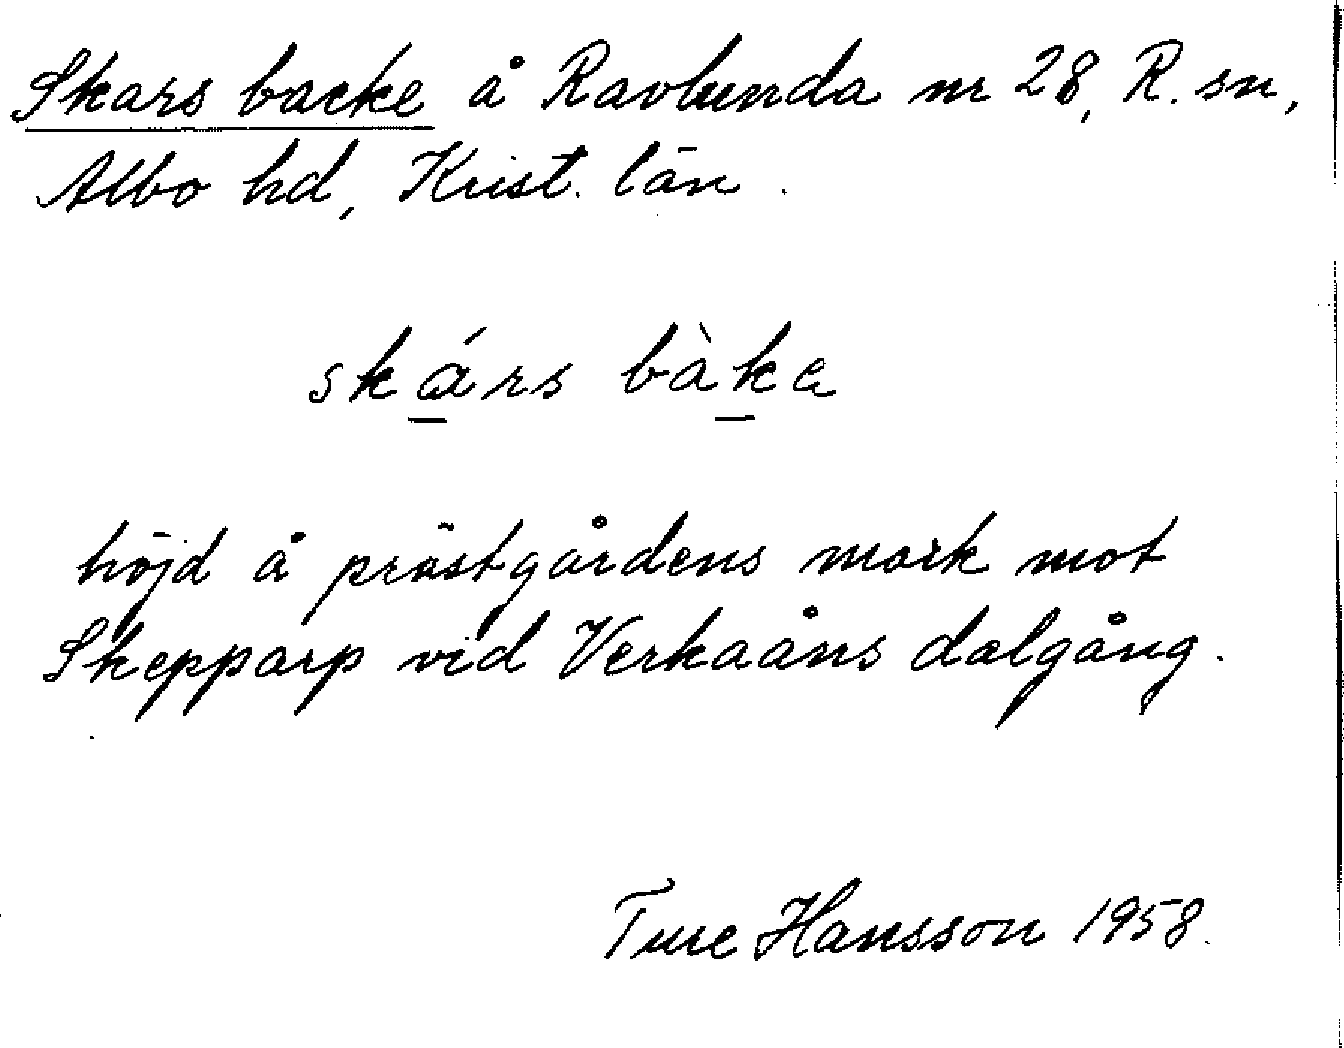 Skars backe å Ravlunda nr 28, R. sn,
Albo hd, Krist. län.
skárs bàkę
höjd å prästgårdens mark mot
Skepparp vid Verkaåns dalgång.
Ture Hansson 1958.